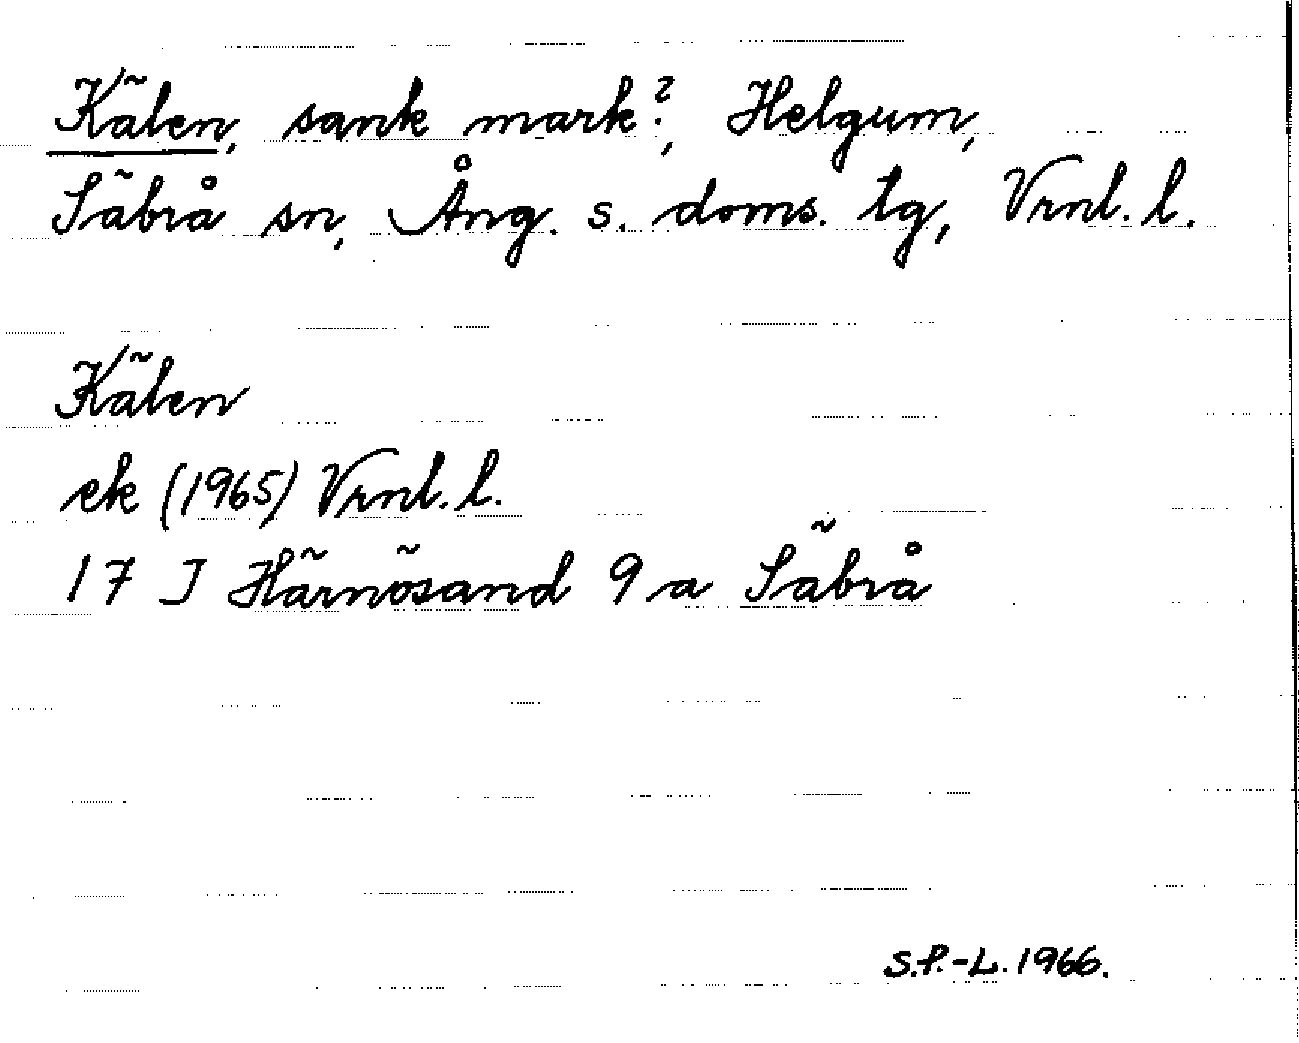 Kälen, sank mark?, Helgum,
Säbrå sn, Ång. s. doms. tg, Vrnl. l.
Kälen
ek (1965) Vrnl. l.
17 J Härnösand 9 a Säbrå
S.P.-L. 1966.